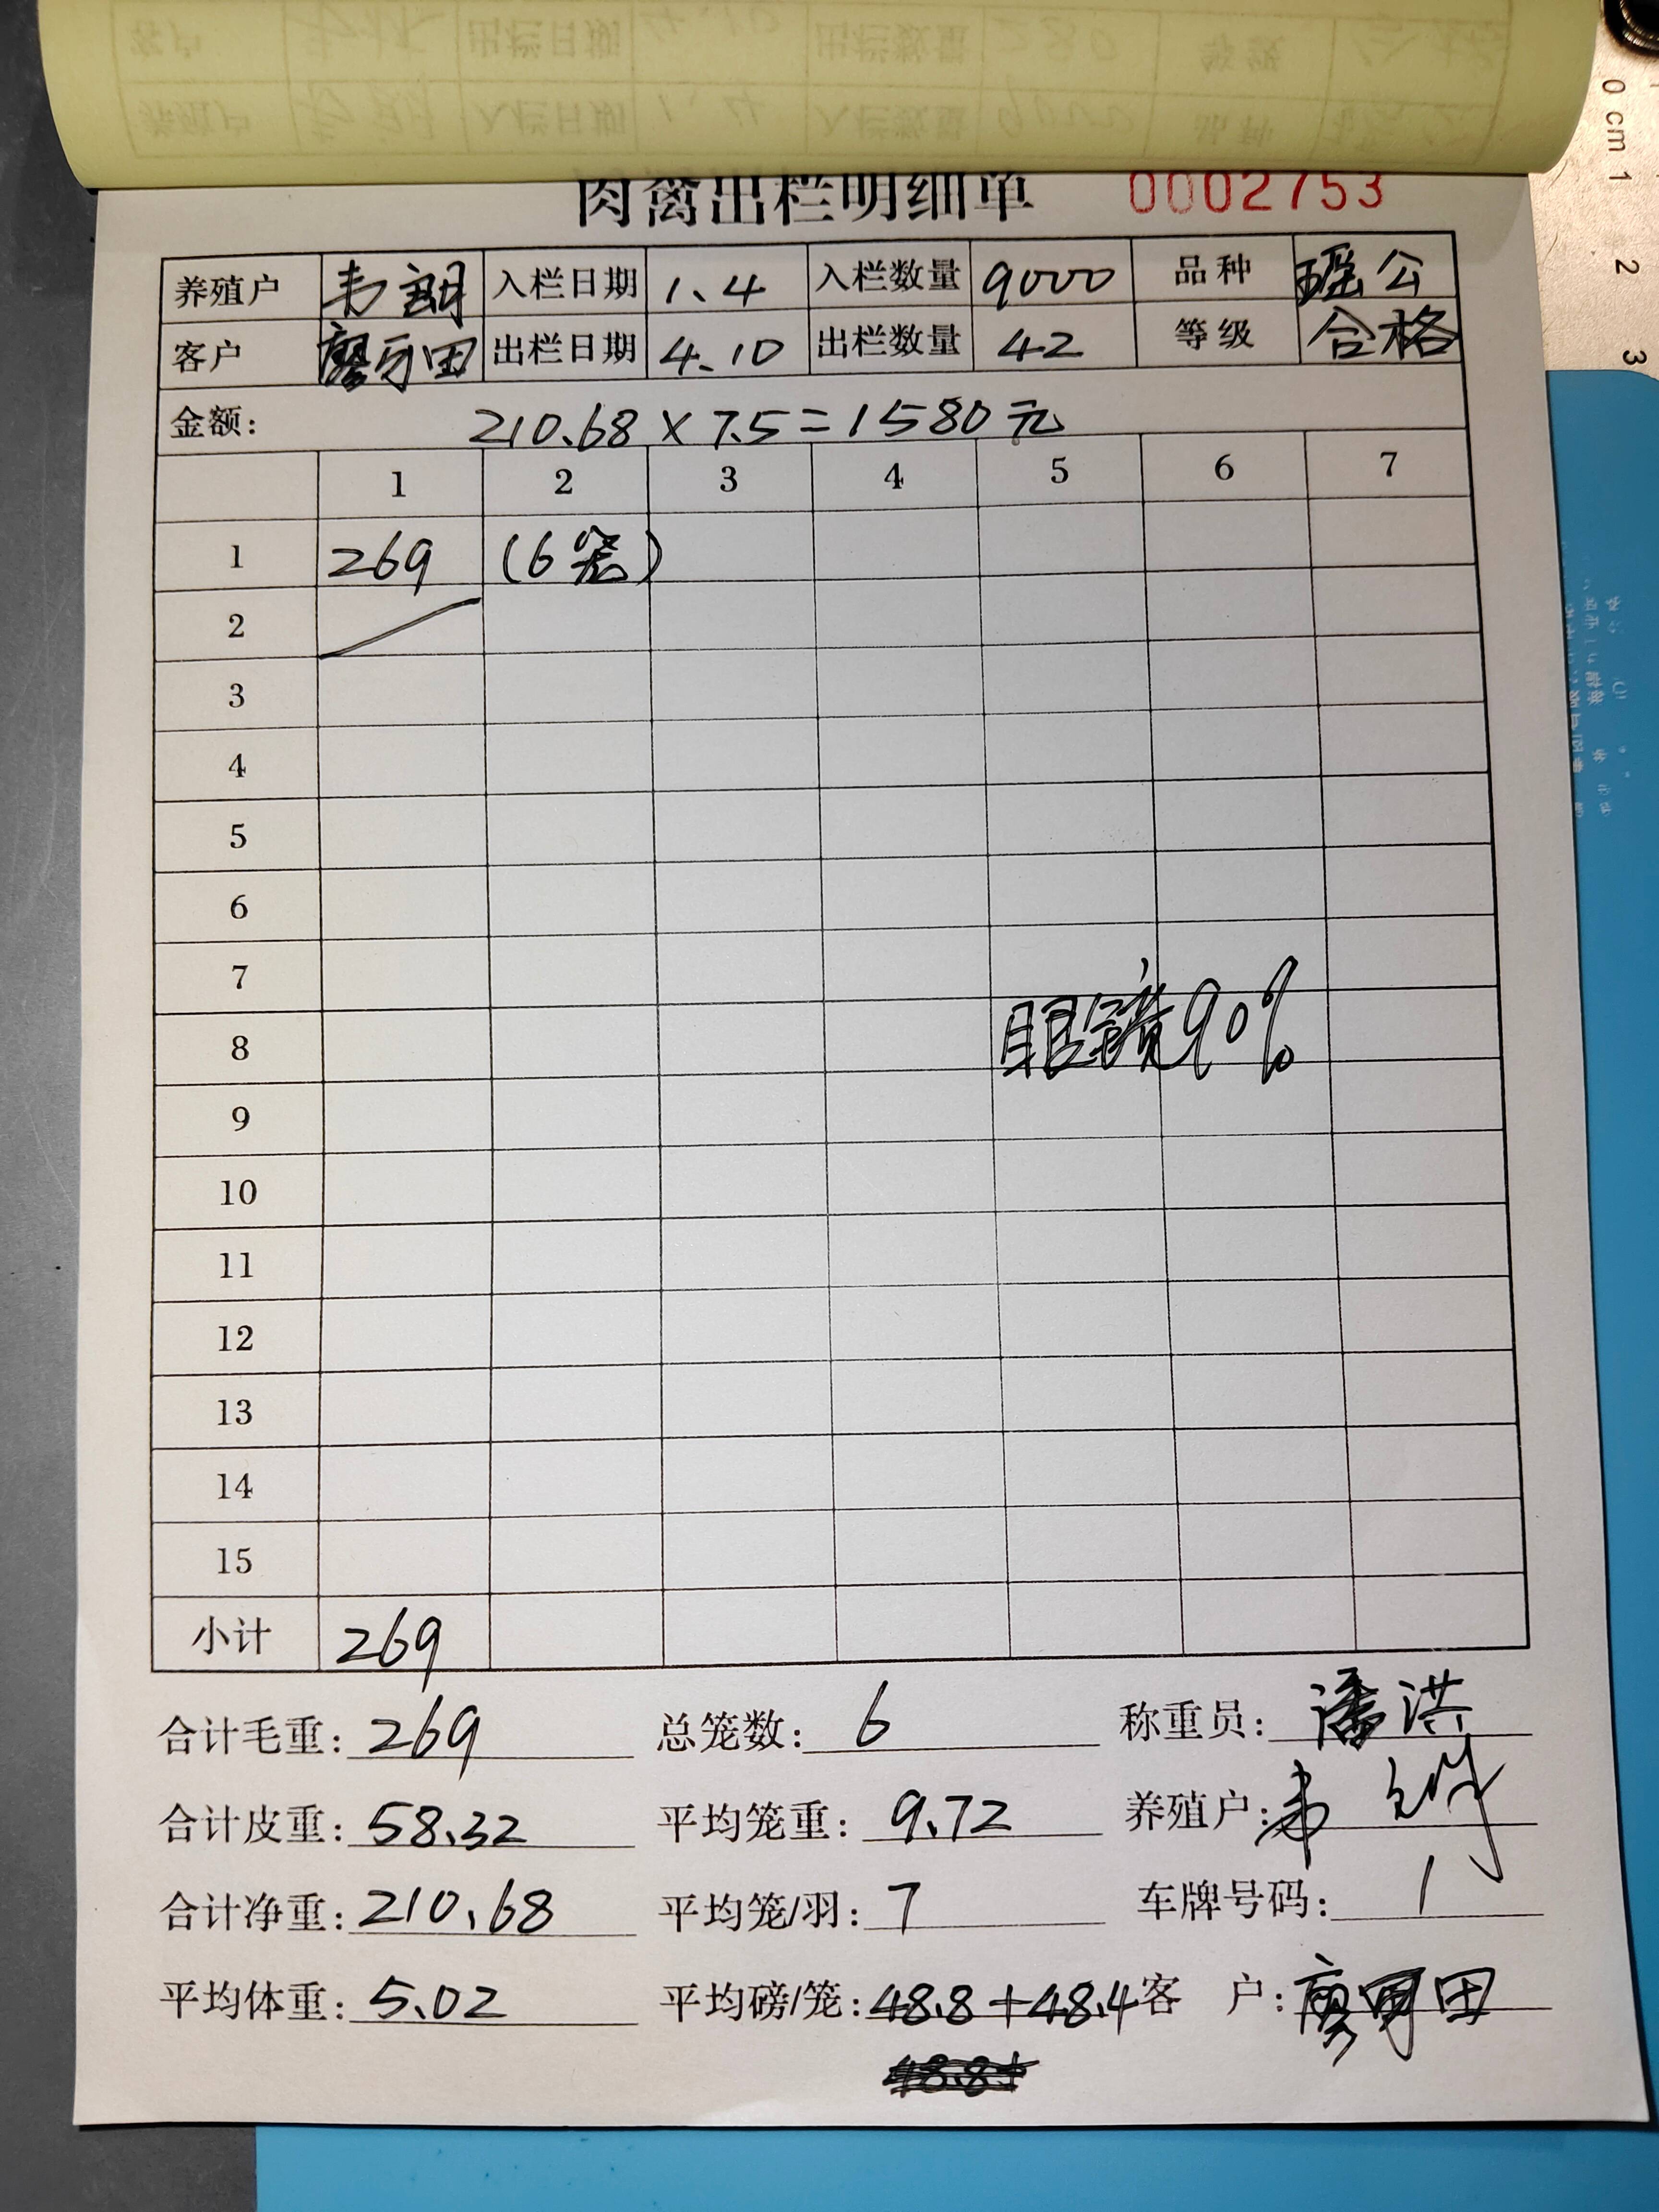 肉禽出栏明细单 0002753
养殖户 韦朗 入栏日期 1.4 入栏数量 9000 品种 瑶公
客户 廖牙田 出栏日期 4.10 出栏数量 42 等级 合格
金额: 210.68×7.5=1580元
1 2 3 4 5 6 7
1 269 (6笼)
2
3
4
5
6
7
8 眼镜90%
9
10
11
12
13
14
15
小计 269
合计毛重: 269 总笼数: 6 称重员: 潘洪
合计皮重: 58.32 平均笼重: 9.72 养殖户: 韦
合计净重: 210.68 平均笼/羽: 7 车牌号码: /
平均体重: 5.02 平均磅/笼: 48.8+48.4 客户: 廖 田
0 cm 1 2 3